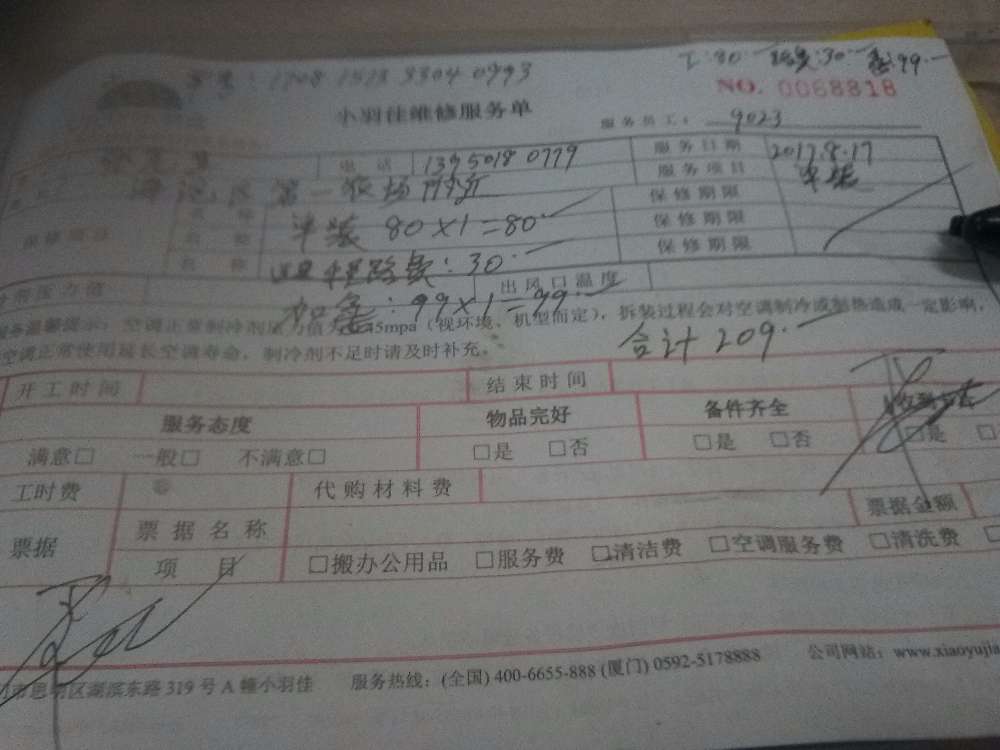 工:80 路费:30 氟:99
NO. 0068818
小羽佳维修服务单
服务员工: 9023
电话 1395018 0779 服务日期 2017.8.17
海沧区第一农场 服务项目 单装
名称 单装 80×1=80 保修期限
保修期限
名称 远程路费:30 保修期限
出风口温度
加氟:99×1=99
空调正常制冷剂压力值 45mpa(视环境、机型而定),拆装过程会对空调制冷或制热造成一定影响,
空调正常使用延长空调寿命,制冷剂不足时请及时补充。 合计209
开工时间 结束时间
服务态度 物品完好 备件齐全
满意□ 一般□ 不满意□ □是 □否 □是 □否 □是 □
工时费 代购材料费
票据 票据名称 票据金额
项目 □搬办公用品 □服务费 □清洁费 □空调服务费 □清洗费
市思明区湖滨东路319号A幢小羽佳 服务热线:(全国) 400-6655-888 (厦门) 0592-5178888 公司网站:www.xiaoyujia